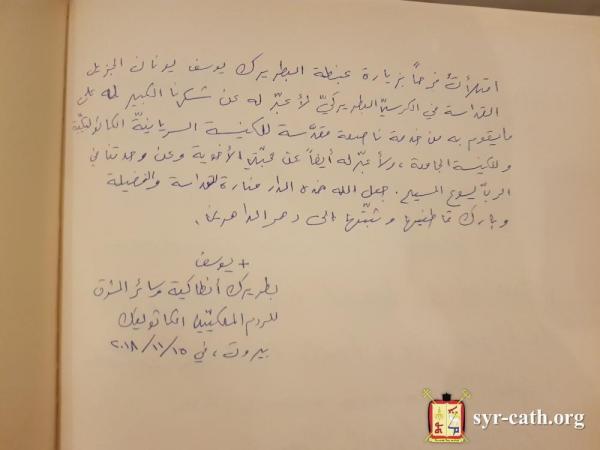 امتلأتُ فرحاً بزيارة غبطة البطريرك يوسف يونان الجزيل
القداسة في الكرسيّ البطريركيّ لأعبّر له عن شكرنا الكبير له على
ما يقوم به من خدمة ناصعة مقدّسة للكنيسة السريانيّة الكاثوليكيّة
وللكنيسة الجامعة، ولأعبّر له أيضاً عن محبّتي الأخوية وعن وحدتنا في
الربّ يسوع المسيح. جعل الله هذه الدار منارة للقداسة والفضيلة
وبارك قاطنيها وثبّتها إلى دهر الداهرين.
+ يوسف
بطريرك أنطاكية وسائر المشرق
للروم الملكيّين الكاثوليك
بيروت، في ٢٠١٨/١١/١٥
syr-cath.org